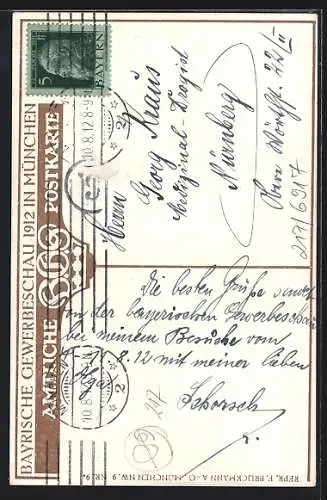 BAYRISCHE GEWERBESCHAU 1912 IN MÜNCHEN
AMTLICHE POSTKARTE
5
BAYERN
10.8.12.8-9
Herrn
Georg Kraus
Medizinal-Drogist
Nürnberg
Obere Wörthstr. 22/II
217/6917
Die besten Grüße sendet
von der bayerischen Gewerbeschau
bei meinem Besuche vom
8.12 mit meiner lieben
Schorsch
217
REPR. F. BRUCKMANN A.-G. MÜNCHEN NW. 9 NR. 9.